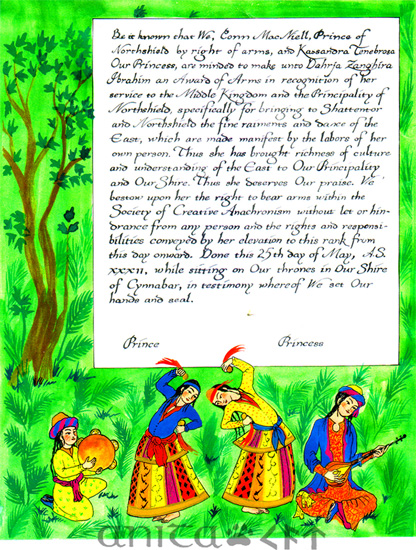 Be it known that We, Conn MacNeill, Prince of
Northshield by right of arms, and Kassandra Tenebrosa
Our Princess, are minded to make unto Dahrja Zanghira
Ibrahim an Award of Arms in recognition of her
service to the Middle Kingdom and the Principality of
Northshield, specifically for bringing to Shattentor
and Northshield the fine raiments and dance of the
East, which are made manifest by the labors of her
own person. Thus she has brought richness of culture
and understanding of the East to Our Principality
and Our Shire. Thus she deserves Our praise. We
bestow upon her the right to bear arms within the
Society of Creative Anachronism without let or hin-
drance from any person and the rights and responsi-
bilities conveyed by her elevation to this rank from
this day onward. Done this 25th day of May, A.S.
XXXII, while sitting on Our thrones in Our Shire
of Cynnabar, in testimony whereof We set Our
hands and seal.
Prince Princess
anita